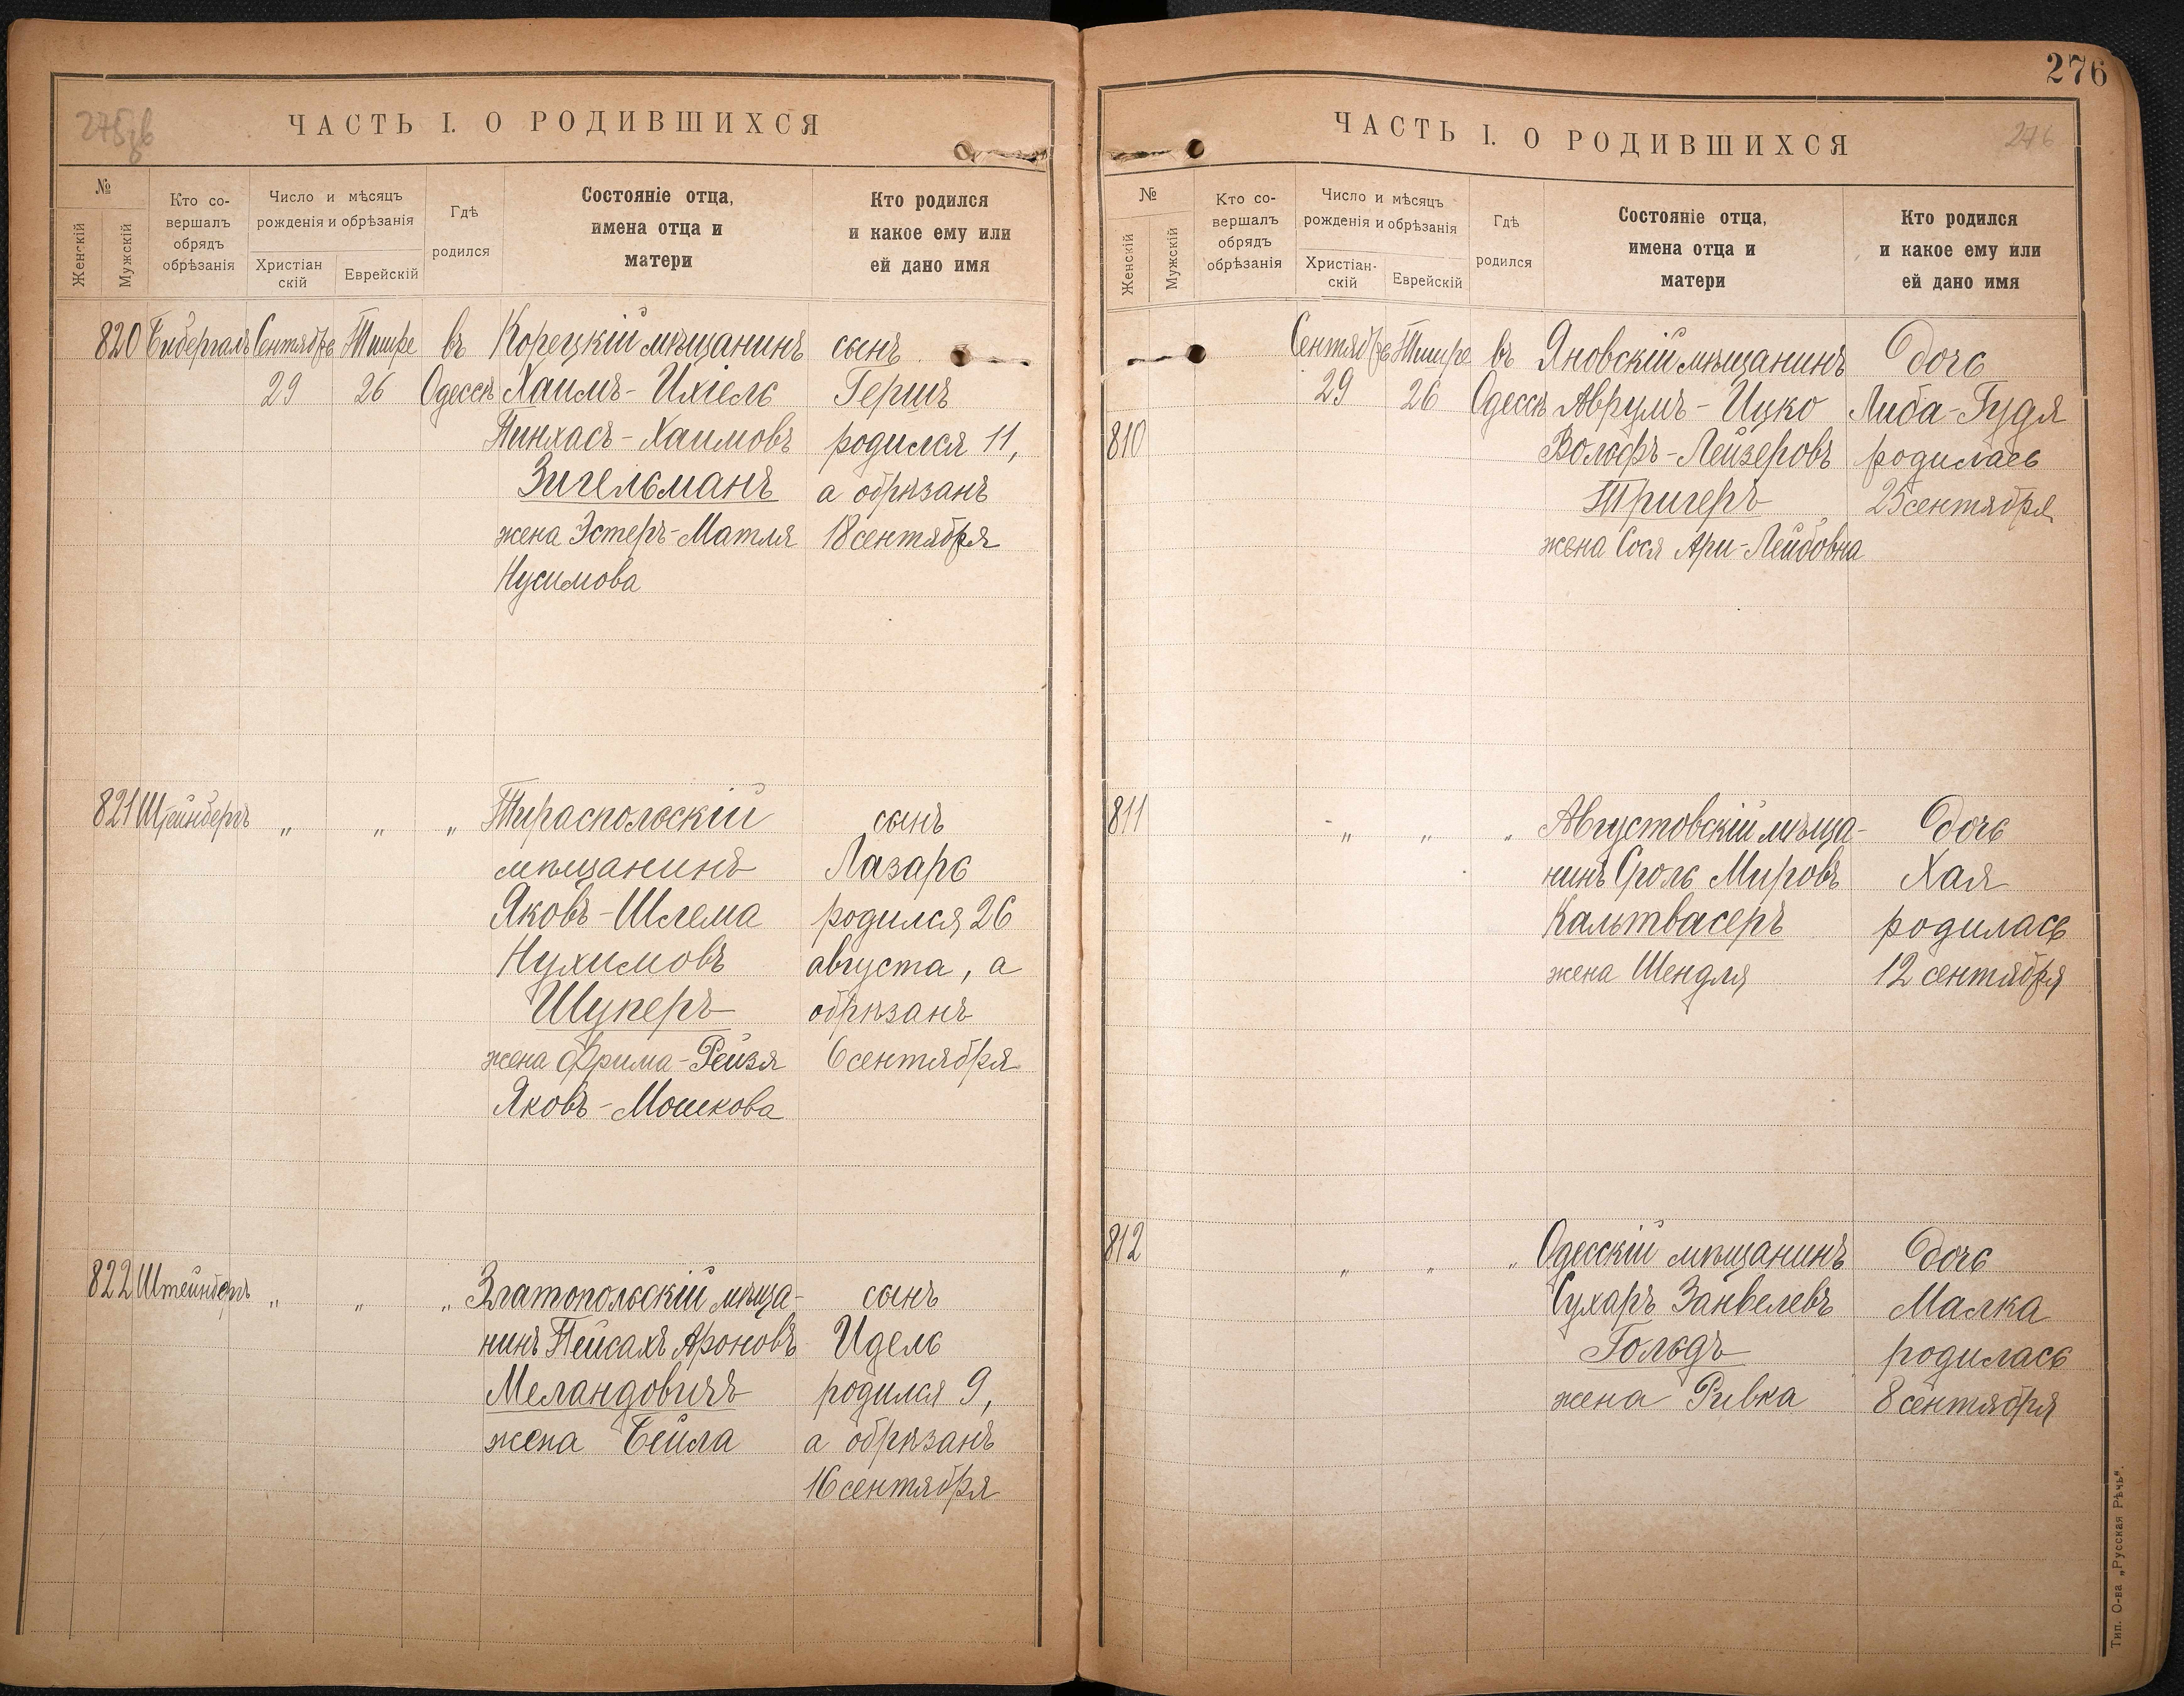 275об
ЧАСТЬ I. О РОДИВШИХСЯ
№
Женскій
Мужскій
Кто со-
вершалъ
обрядъ
обрѣзанія
Число и мѣсяцъ
рожденія и обрѣзанія
Христіан
скій
Еврейскій
Гдѣ
родился
Состояніе отца,
имена отца и
матери
Кто родился
и какое ему или
ей дано имя
820 Бибергалъ Сентября Тишре въ Корецкій мѣщанинъ сынъ
29 26 Одессѣ Хаимъ-Ихіель Гершъ
Пинхасъ-Хаимовъ родился 11,
Зигельманъ а обрѣзанъ
жена Эстеръ-Матля 18 сентября
Нусимова
821 Штейнбергъ „ „ „ Тираспольскій сынъ
мѣщанинъ Лазарь
Яковъ-Шлема родился 26
Нухимовъ августа, а
Шуперъ обрѣзанъ
жена Фрима-Рейзя 6 сентября
Яковъ-Мошкова
822 Штейнбергъ „ „ „ Златопольскій мѣща-
нинъ Пейсахъ Ароновъ сынъ Идель
Меландовичъ родился 9,
жена Бейла а обрѣзанъ
16 сентября
276
ЧАСТЬ I. О РОДИВШИХСЯ
276
№
Женскій
Мужскій
Кто со-
вершалъ
обрядъ
обрѣзанія
Число и мѣсяцъ
рожденія и обрѣзанія
Христіан-
скій
Еврейскій
Гдѣ
родился
Состояніе отца,
имена отца и
матери
Кто родился
и какое ему или
ей дано имя
Сентября Тишре въ Яновскій мѣщанинъ дочь
29 26 Одессѣ Аврумъ-Ицко Либа-Гудя
810 Вольфъ-Лейзеровъ родилась
Тригеръ 25 сентября
жена Сося Ари-Лейбовна
811 „ „ „ Августовскій мѣща- дочь
нинъ Сроль Мировъ Хая
Кальтвасеръ родилась
жена Шендля 12 сентября
812 „ „ „ Одесскій мѣщанинъ дочь
Сухаръ Занвелевъ Малка
Гольдъ родилась
жена Ривка 8 сентября
Тип. О-ва „Русская Рѣчь“.